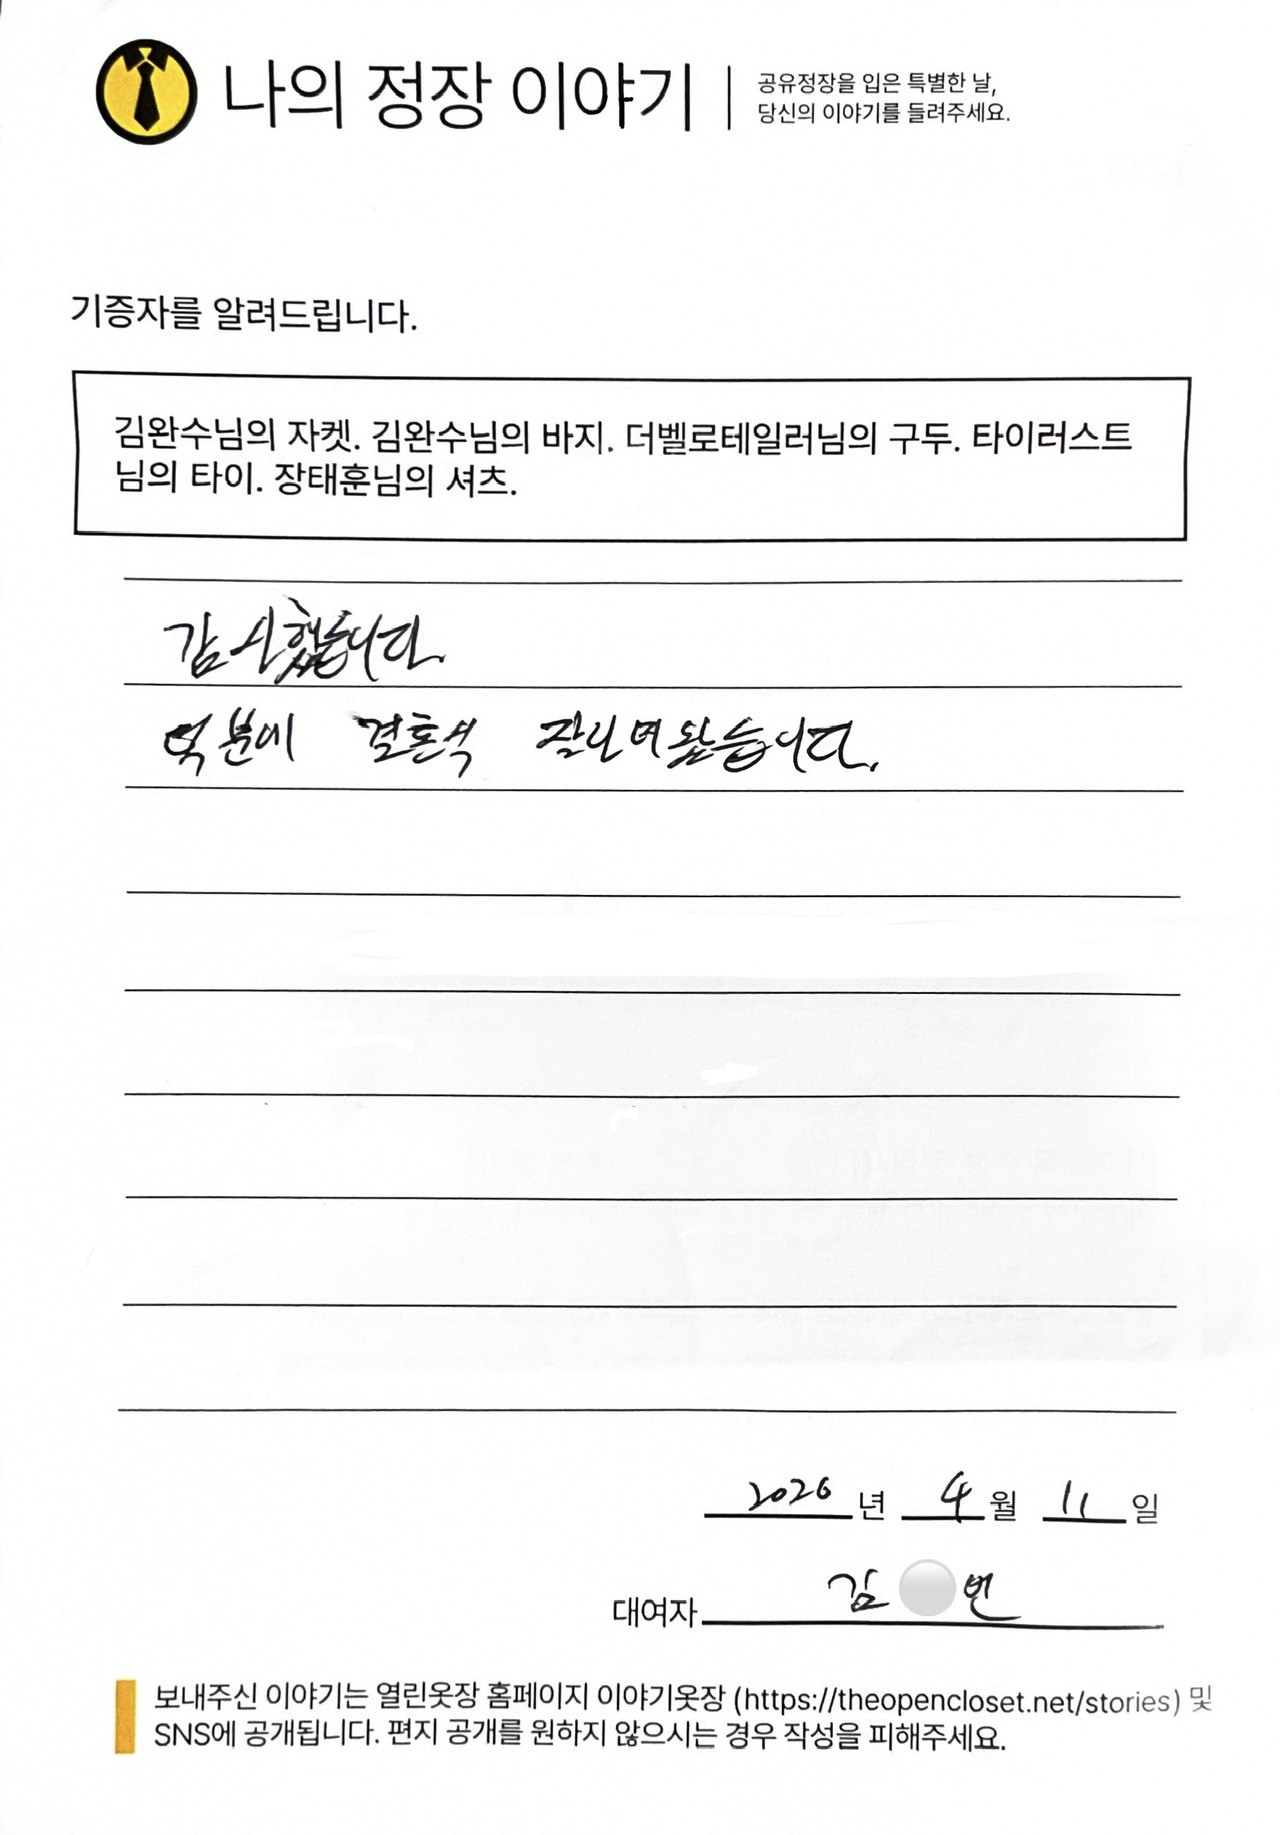 나의 정장 이야기
공유정장을 입은 특별한 날,
당신의 이야기를 들려주세요.
기증자를 알려드립니다.
김완수님의 자켓. 김완수님의 바지. 더벨로테일러님의 구두. 타이러스트
님의 타이. 장태훈님의 셔츠.
감사했습니다.
덕분에 결혼식 잘 다녀왔습니다.
2026 년 4 월 11 일
대여자 김 번
보내주신 이야기는 열린옷장 홈페이지 이야기옷장 (https://theopencloset.net/stories) 및
SNS에 공개됩니다. 편지 공개를 원하지 않으시는 경우 작성을 피해주세요.